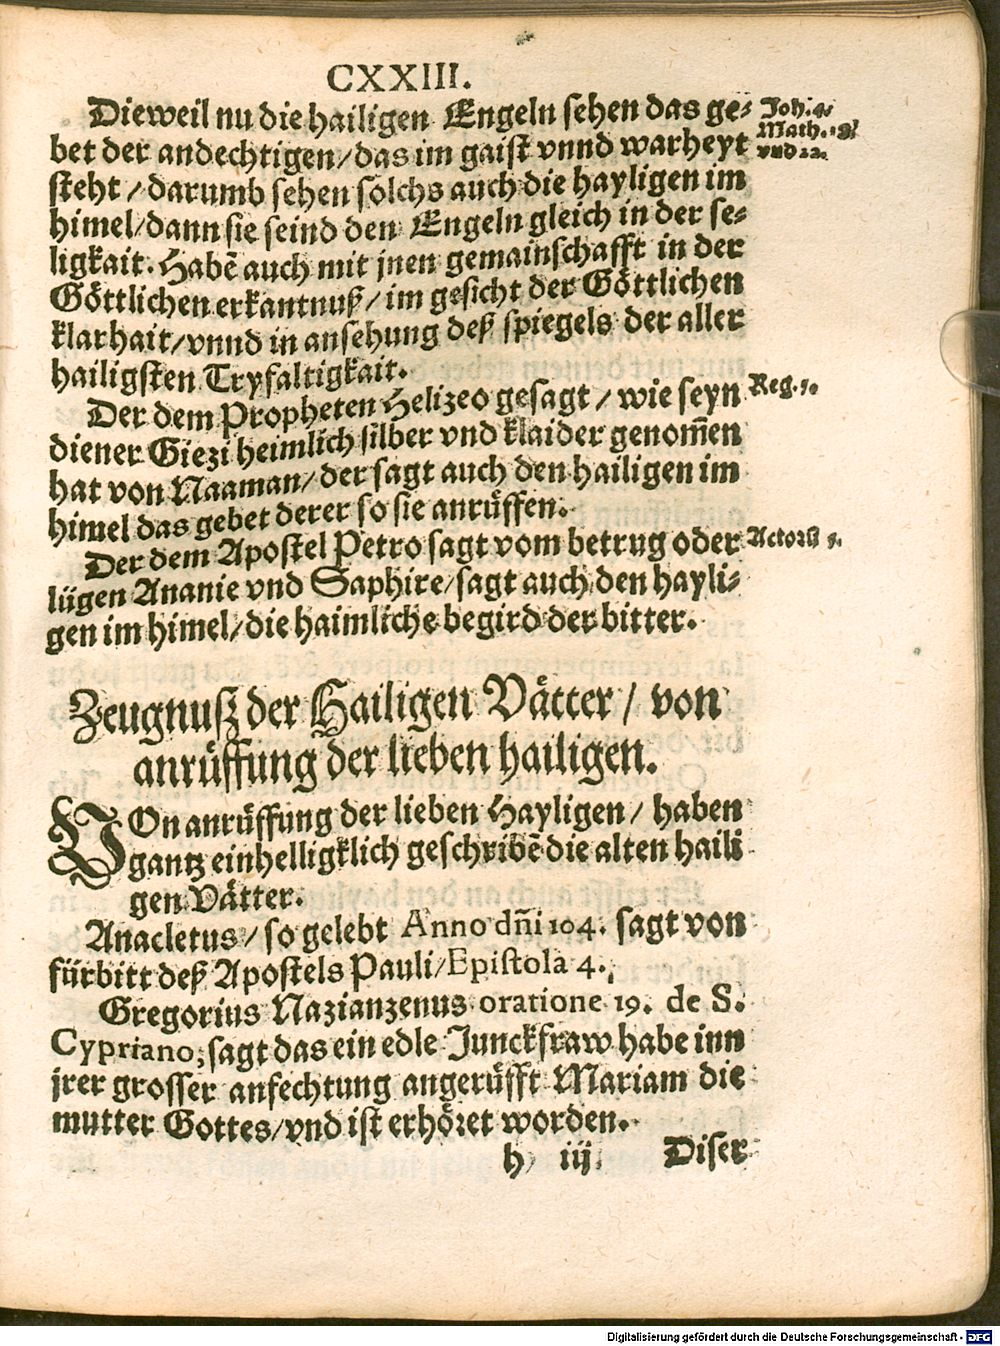 CXXIII.
Dieweil nu die hailigen Engeln sehen das ge-
bet der andechtigen/das im gaist vnnd warheyt
steht/darumb sehen sölchs auch die hayligen im
himel/dann sie seind den Engeln gleich in der se-
ligkait. Habē auch mit jnen gemainschafft in der
Göttlichen erkantnuß/im gesicht der Göttlichen
klarhait/vnnd in ansehung deß spiegels der aller
hailigsten Tryfaltigkait.
Joh. 4.
Math. 18
vnd 22.
Der dem Propheten Helizeo gesagt/wie seyn
diener Giezi heimlich silber vnd klaider genom̄en
hat von Naaman/der sagt auch den hailigen im
himel das gebet derer so sie anrüffen.
Reg. 5.
Der dem Apostel Petro sagt vom betrug oder
lügen Ananie vnd Saphire/sagt auch den hayli-
gen im himel/die haimliche begird der bitter.
Actorū 5.
Zeugnuß der Hailigen Vätter/von
anrüffung der lieben hailigen.
VOn anrüffung der lieben Hayligen/haben
gantz einhelligklich geschribē die alten haili
gen Vätter.
Anacletus/so gelebt Anno dñi 104. sagt von
fürbitt deß Apostels Pauli/Epistola 4.
Gregorius Nazianzenus oratione 19. de S.
Cypriano, sagt das ein edle Junckfraw habe inn
jrer grosser anfechtung angerüfft Mariam die
mutter Gottes/vnd ist erhöret worden.
h iij
Diser
Digitalisierung gefördert durch die Deutsche Forschungsgemeinschaft - DFG